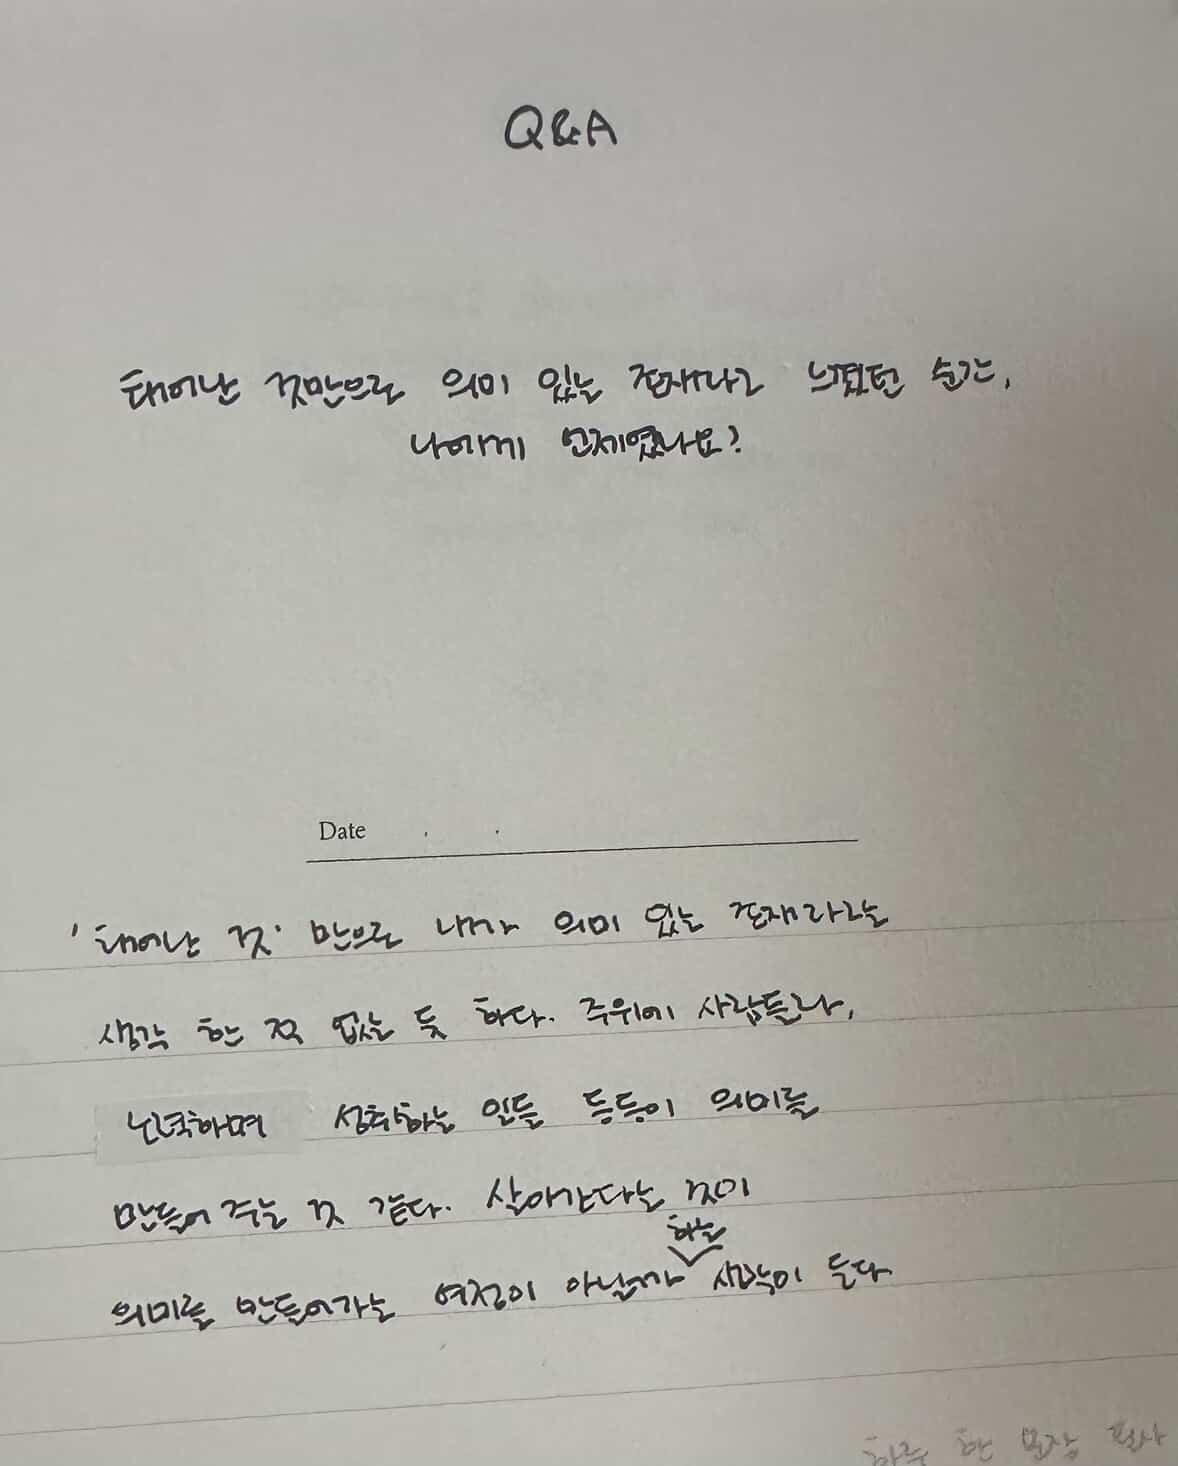 Q&A
태어난 것만으로 의미 있는 존재라고 느꼈던 순간,
나에게 언제였나요?
Date . .
'태어난 것' 만으로 내가 의미 있는 존재라고는
생각 한 적 없는 듯 하다. 주위에 사람들과,
노력하며 성취하는 일들 등등이 의미를
만들어 주는 것 같다. 살아간다는 것이
하는
의미를 만들어가는 여정이 아닐까 생각이 든다
하루 한 문장 필사